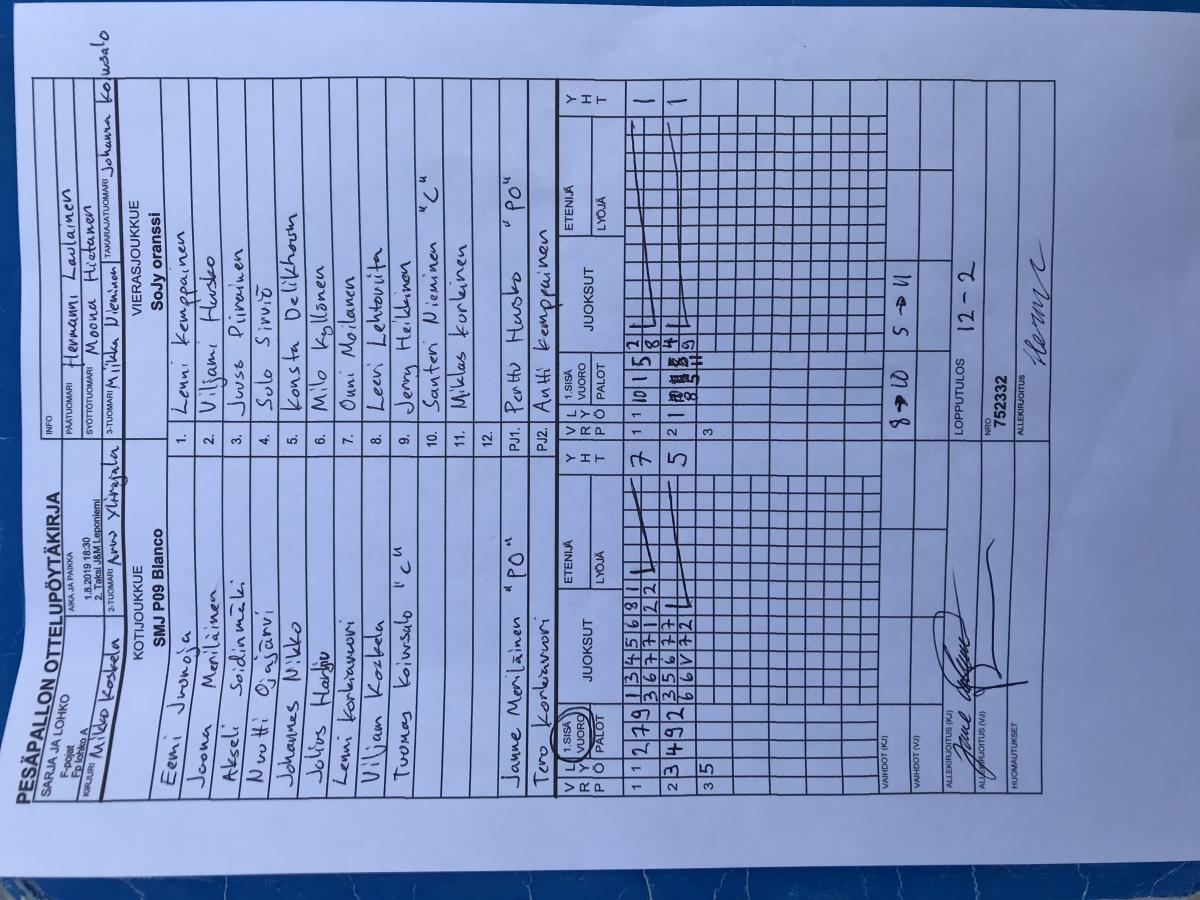 PESÄPALLON OTTELUPÖYTÄKIRJA
SARJA JA LOHKO
F-pojat
Fp lohko A
AIKA JA PAIKKA
1.8.2019 18:30
2, Taksi J&M Leponiemi
INFO
PÄÄTUOMARI Hermanni Laulainen
SYÖTTÖTUOMARI Moona Hietanen
KIRJURI Mikko Koskela
2-TUOMARI Anw Ylirajala
3-TUOMARI Miikka Nieminen
TAKARAJATUOMARI Johanna Koivusalo
KOTIJOUKKUE
SMJ P09 Blanco
VIERASJOUKKUE
SoJy oranssi
Eemi Juonoja 1. Lenni Kemppainen
Joona Meriläinen 2. Viljami Husko
Akseli Soidinmäki 3. Juuso Piirainen
Nuutti Ojajärvi 4. Solo Sinviö
Johannes Nikko 5. Konsta Delikhoum
Julius Harju 6. Milo Kyllönen
Lenni Korkiavuori 7. Onni Moilanen
Viljam Kozkela 8. Leevi Lehtoviita
Tuomas Koivusalo "C" 9. Jenny Heikkinen
10. Santeri Nieminen "C"
11. Miklas Korkinen
12.
Janne Meriläinen "PO" PJ1. Perttu Husko "PO"
Tero Korkiavuori PJ2. Antti Kemppainen
V R P L Y Ö 1.SISÄ VUORO PALOT JUOKSUT ETENIJÄ LYÖJÄ Y H T V R P L Y Ö 1.SISÄ VUORO PALOT JUOKSUT ETENIJÄ LYÖJÄ Y H T
1 1 2 7 9 1 3 4 5 6 8 1 7 1 1 10 1 5 2 1
3 6 7 7 1 2 2 8
2 3 4 9 2 3 5 6 7 7 5 2 1 4 1
6 6 V 7 2 8 5 11 9
3 5 3
VAIHDOT (KJ) 8→10 5→11
VAIHDOT (VJ)
ALLEKIRJOITUS (KJ)
LOPPUTULOS 12-2
ALLEKIRJOITUS (VJ)
NRO
752332
HUOMAUTUKSET
ALLEKIRJOITUS